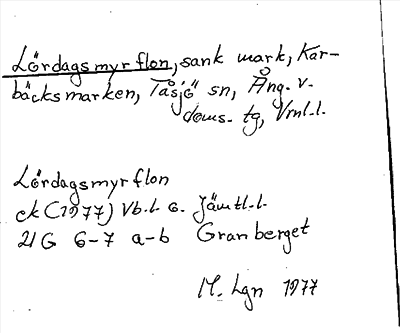 Lördagsmyrflon, sank mark, Kar-
bäcksmarken, Tåsjö sn, Ång. v.
doms. tg, Vnl.l.
Lördagsmyrflon
ek (1977) Vb.l o. Jämtl.l.
21 G 6-7 a-b Granberget
M. Lgn 1977